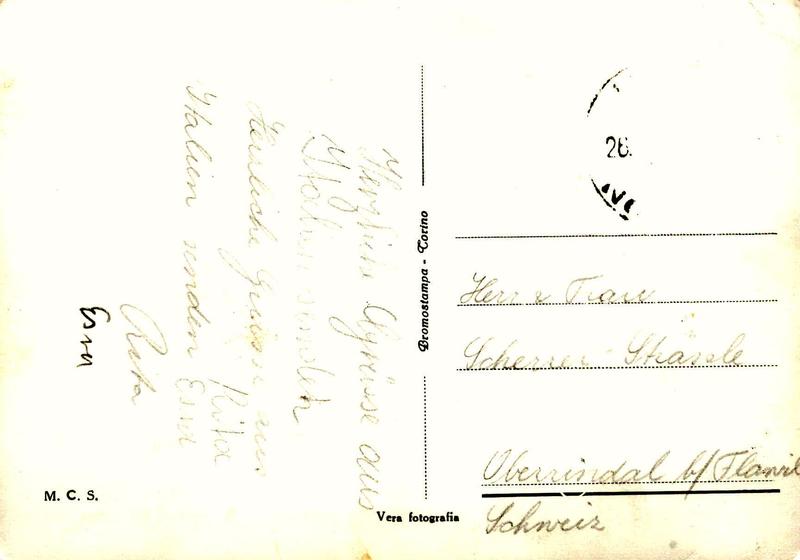 Herzlich Grüsse aus
Italien senden
Herzliche Grüsse aus
Italien senden
Rita
Erna
Rita
Erna
M. C. S.
Bromostampa - Torino
Vera fotografia
26.
Herr u Frau
Scherrer Strässle
Oberrindal b/ Flawil
Schweiz